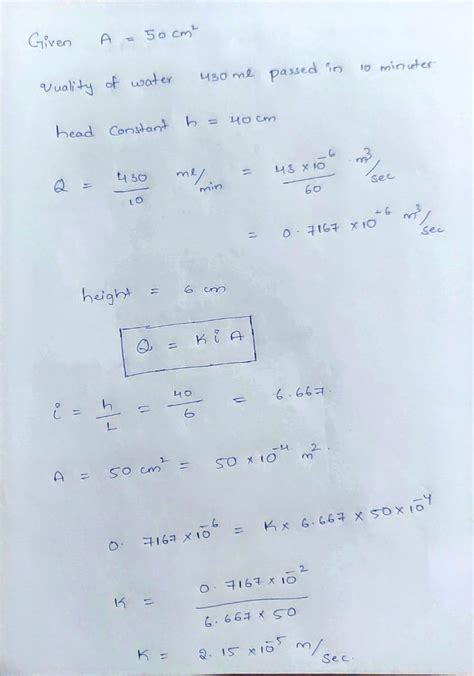 Given A = 50 cm²
Quality of water 430 ml passed in 10 minutes
head Constant h = 40 cm
Q = 430/10 ml/min = 43 × 10⁻⁶/60 m³/sec
= 0.7167 × 10⁻⁶ m³/sec
height = 6 cm
Q = K i A
i = h/L = 40/6 = 6.667.
A = 50 cm² = 50 × 10⁻⁴ m².
0.7167 × 10⁻⁶ = K × 6.667 × 50 × 10⁻⁴
K = 0.7167 × 10⁻²/6.667 × 50
K = 2.15 × 10⁻⁵ m/sec.